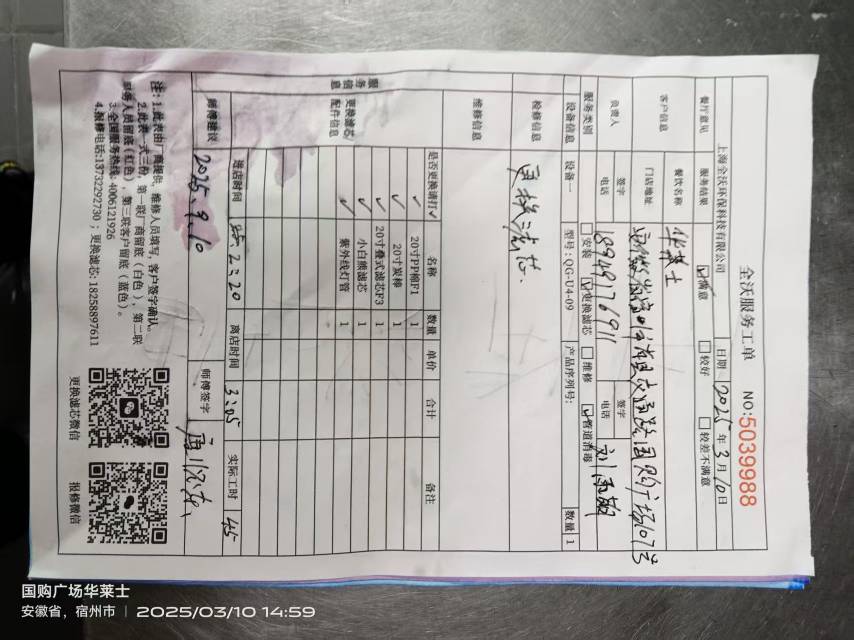 全沃服务工单
NO:5039988
上海全沃环保科技有限公司 日期 2025年3月10日
餐厅意见 服务结果 ☑满意 □较好 □较差不满意
客户信息 餐饮名称 华莱士
门店地址 国购广场107号
负责人 签字 签字
电话 18949176911 电话
服务类别 □安装 ☑更换滤芯 □维修 ☑管道消毒
设备信息 设备一 型号:QG-U4-09 产品序列号: 数量 1
检修信息 更换滤芯.
维修信息
服务信息 更换滤芯/配件信息
是否更换请打√ 名称 数量 单价 合计 备注
√ 20寸PP棉F1 1
√ 20寸炭棒 1
√ 20寸叠式滤芯F3 1
√ 小白熊滤芯 1
√ 紫外线灯管 1
进店时间 2:20 离店时间 3:05 实际工时 45
师傅建议 2025.9.10 师傅签字
注:1.此表由厂商提供,维修人员填写,客户签字确认。
2.此表一式三份,第一联厂商留底(白色),第二联
服务人员留底(红色),第三联客户留底(蓝色)。
3.全国服务热线:4006121926
4.报修电话:13732292730;更换滤芯:18258897611
更换滤芯微信 报修微信
国购广场华莱士
安徽省,宿州市 | 2025/03/10 14:59